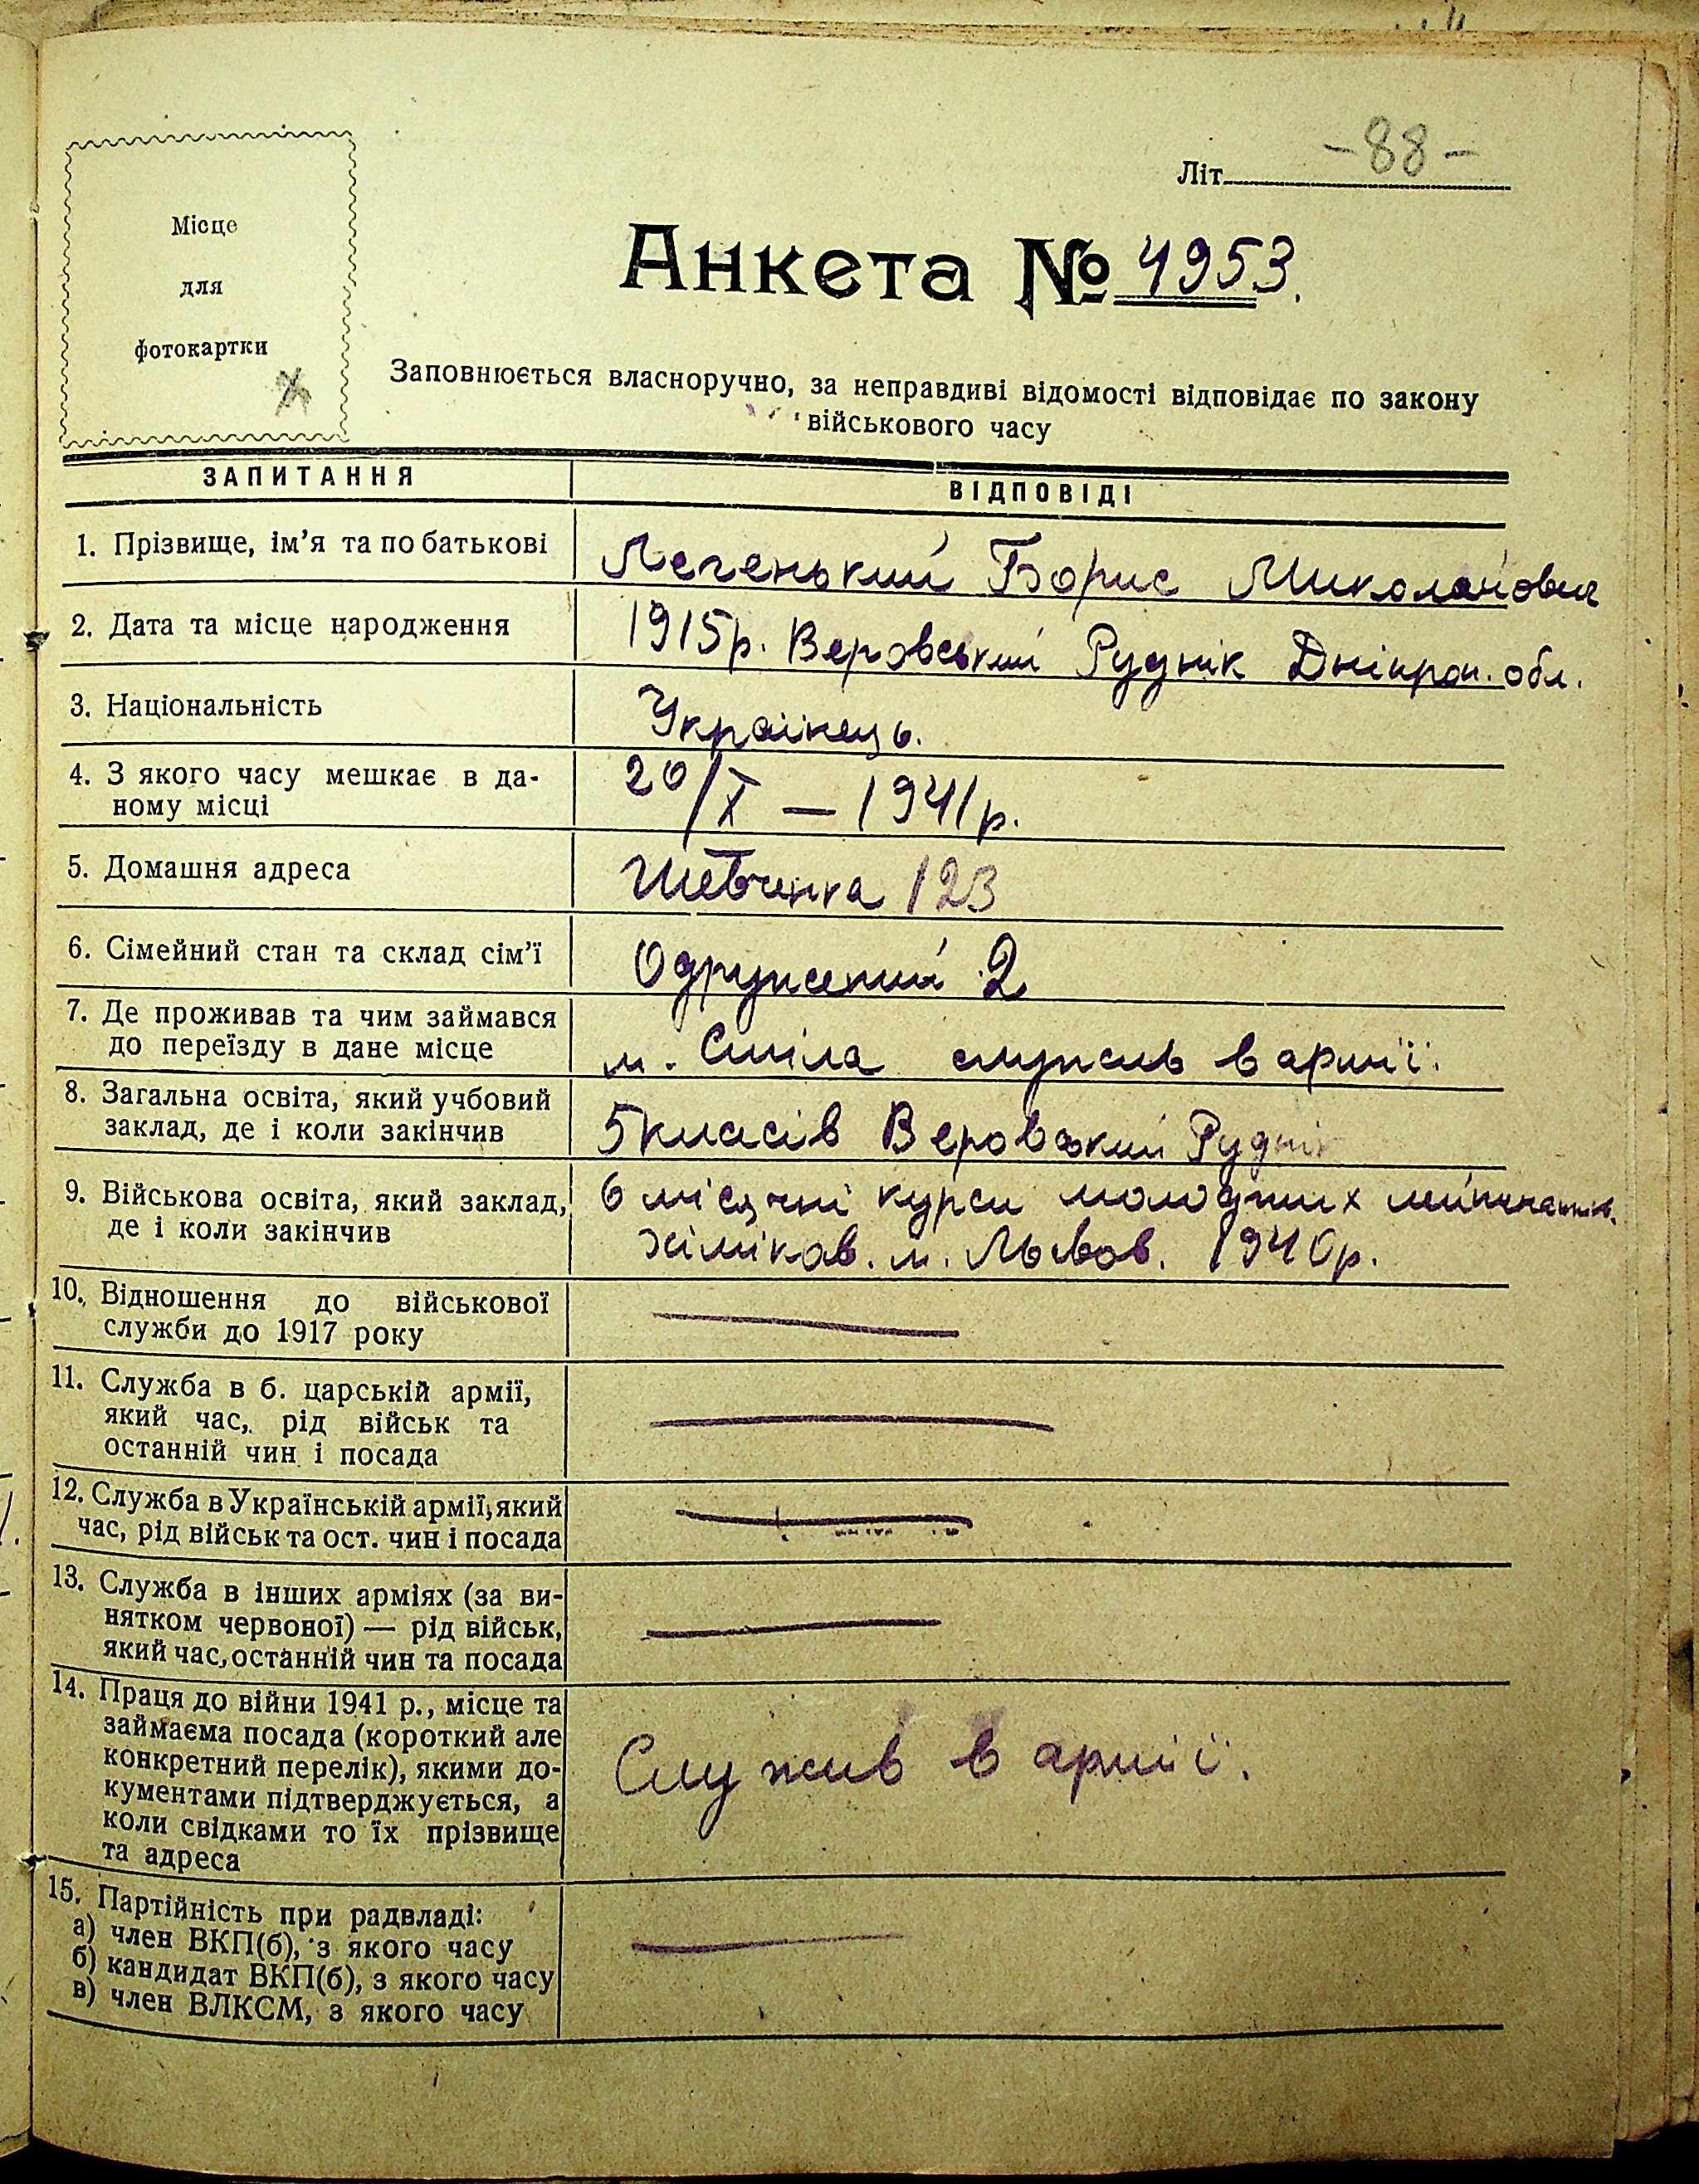 Літ. -88-
Місце
для
фотокартки
Анкета № 4953.
Заповнюється власноручно, за неправдиві відомості відповідає по закону
військового часу
ЗАПИТАННЯ ВІДПОВІДІ
1. Прізвище, ім'я та по батькові Легенький Борис Миколайович
2. Дата та місце народження 1915р. Веровський Руднік Дніпроп. обл.
3. Національність Українець.
4. З якого часу мешкає в да-
ному місці 20/X — 1941р.
5. Домашня адреса Шевченка 123
6. Сімейний стан та склад сім'ї Одружений 2
7. Де проживав та чим займався
до переїзду в дане місце м. Сміла служив в армії.
8. Загальна освіта, який учбовий
заклад, де і коли закінчив 5 класів Веровський Руднік
9. Військова освіта, який заклад, 6 місячні курси молодших
де і коли закінчив хіміков. м. Львов. 1940р.
10. Відношення до військової
служби до 1917 року —
11. Служба в б. царській армії,
який час, рід військ та
останній чин і посада —
12. Служба в Українській армії, який
час, рід військ та ост. чин і посада —
13. Служба в інших арміях (за ви-
нятком червоної) — рід військ,
який час, останній чин та посада —
14. Праця до війни 1941 р., місце та
займаєма посада (короткий але
конкретний перелік), якими до- Служив в армії.
кументами підтверджується, а
коли свідками то їх прізвище
та адреса
15. Партійність при радвладі:
а) член ВКП(б), з якого часу —
б) кандидат ВКП(б), з якого часу
в) член ВЛКСМ, з якого часу